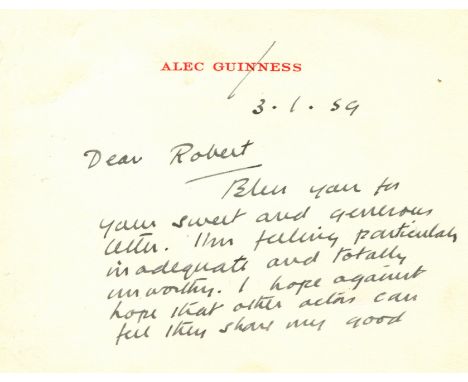 ALEC GUINNESS
3.1.59
Dear Robert
Bless you for
your sweet and generous
letter. I'm feeling particularly
inadequate and totally
unworthy. I hope against
hope that other actors can
feel they share my good